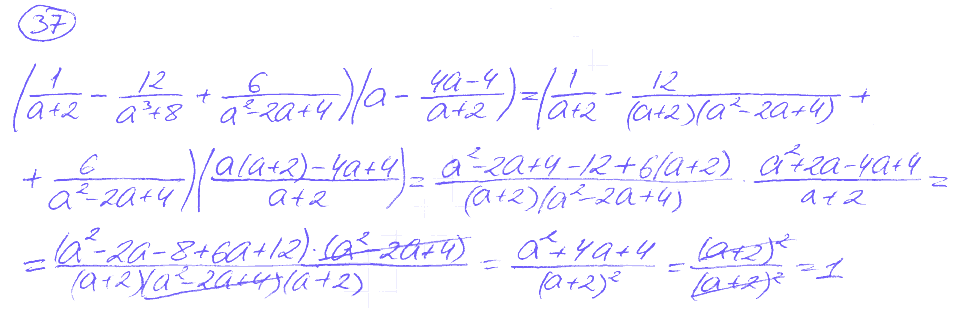 37
(1/(a+2) - 12/(a³+8) + 6/(a²-2a+4))(a - (4a-4)/(a+2)) = (1/(a+2) - 12/((a+2)(a²-2a+4)) +
+ 6/(a²-2a+4))((a(a+2)-4a+4)/(a+2)) = (a²-2a+4-12+6(a+2))/((a+2)(a²-2a+4)) · (a²+2a-4a+4)/(a+2) =
= ((a²-2a-8+6a+12)·(a²-2a+4))/((a+2)(a²-2a+4)(a+2)) = (a²+4a+4)/(a+2)² = (a+2)²/(a+2)² = 1